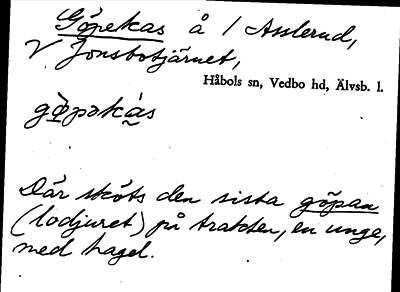 Göpekas å / Asslerud,
V Jonsbotjärnet,
Håbols sn, Vedbo hd, Älvsb. l.
gö̀pəkás
Där sköts den sista göpan
(lodjuret) på trakten, en unge,
med hagel.